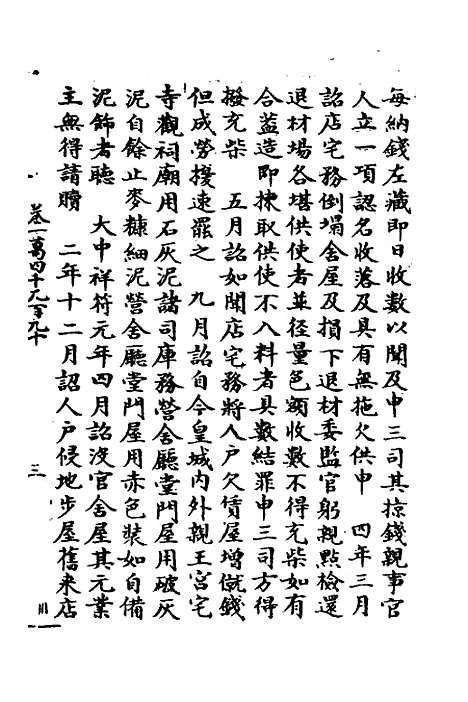 每納錢左藏即日收數以聞及申三司其掠錢親事官
人立一項認名收落及具有無拖欠供申　四年三月
詔店宅務倒塌舍屋及損下退材委監官躬親點檢還
退材場各堪供使者並徑量色額收數不得充柴如有
合蓋造即揀取供使不入料者具數結罪申三司方得
撥充柴　五月詔如聞店宅務將人戶欠賃屋增僦錢
但成勞擾速罷之　九月詔自今皇城內外親王宮宅
寺觀祠廟用石灰泥諸司庫務營舍廳堂門屋用破灰
泥自餘止麥糠細泥營舍廳堂門屋用赤色裝如自備
泥飾者聽　大中祥符元年四月詔沒官舍屋其元業
主無得請贖　二年十二月詔人戶侵地步屋舊來店
卷一萬四千九百九十
三